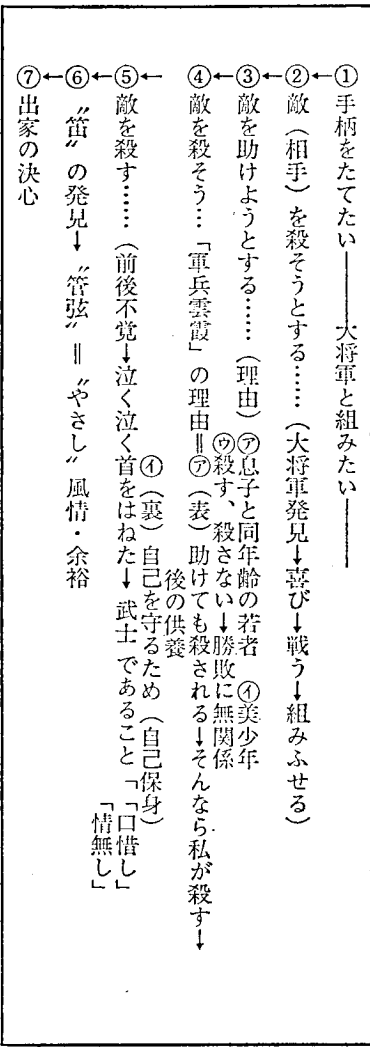 ①手柄をたてたい――大将軍と組みたい――
←
②敵（相手）を殺そうとする……（大将軍発見→喜び→戦う→組みふせる）
←
③敵を助けようとする……（理由）㋐息子と同年齢の若者　㋑美少年
㋒殺す、殺さない→勝敗に無関係
←
④敵を殺そう…「軍兵雲霞」の理由＝㋐（表）助けても殺される→そんなら私が殺す→
後の供養
㋑（裏）自己を守るため（自己保身）
←
⑤敵を殺す……（前後不覚→泣く泣く首をはねた→武士であること「「口惜し」
「情無し」
←
⑥〝笛〟の発見→〝管弦〟＝〝やさし〟風情・余裕
←
⑦出家の決心